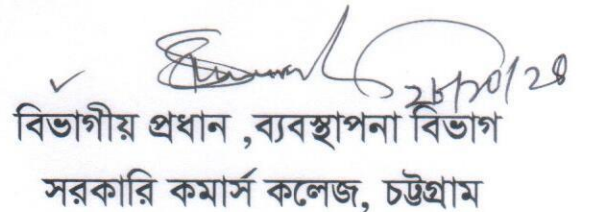 বিভাগীয় প্রধান ,ব্যবস্থাপনা বিভাগ
সরকারি কমার্স কলেজ, চট্টগ্রাম